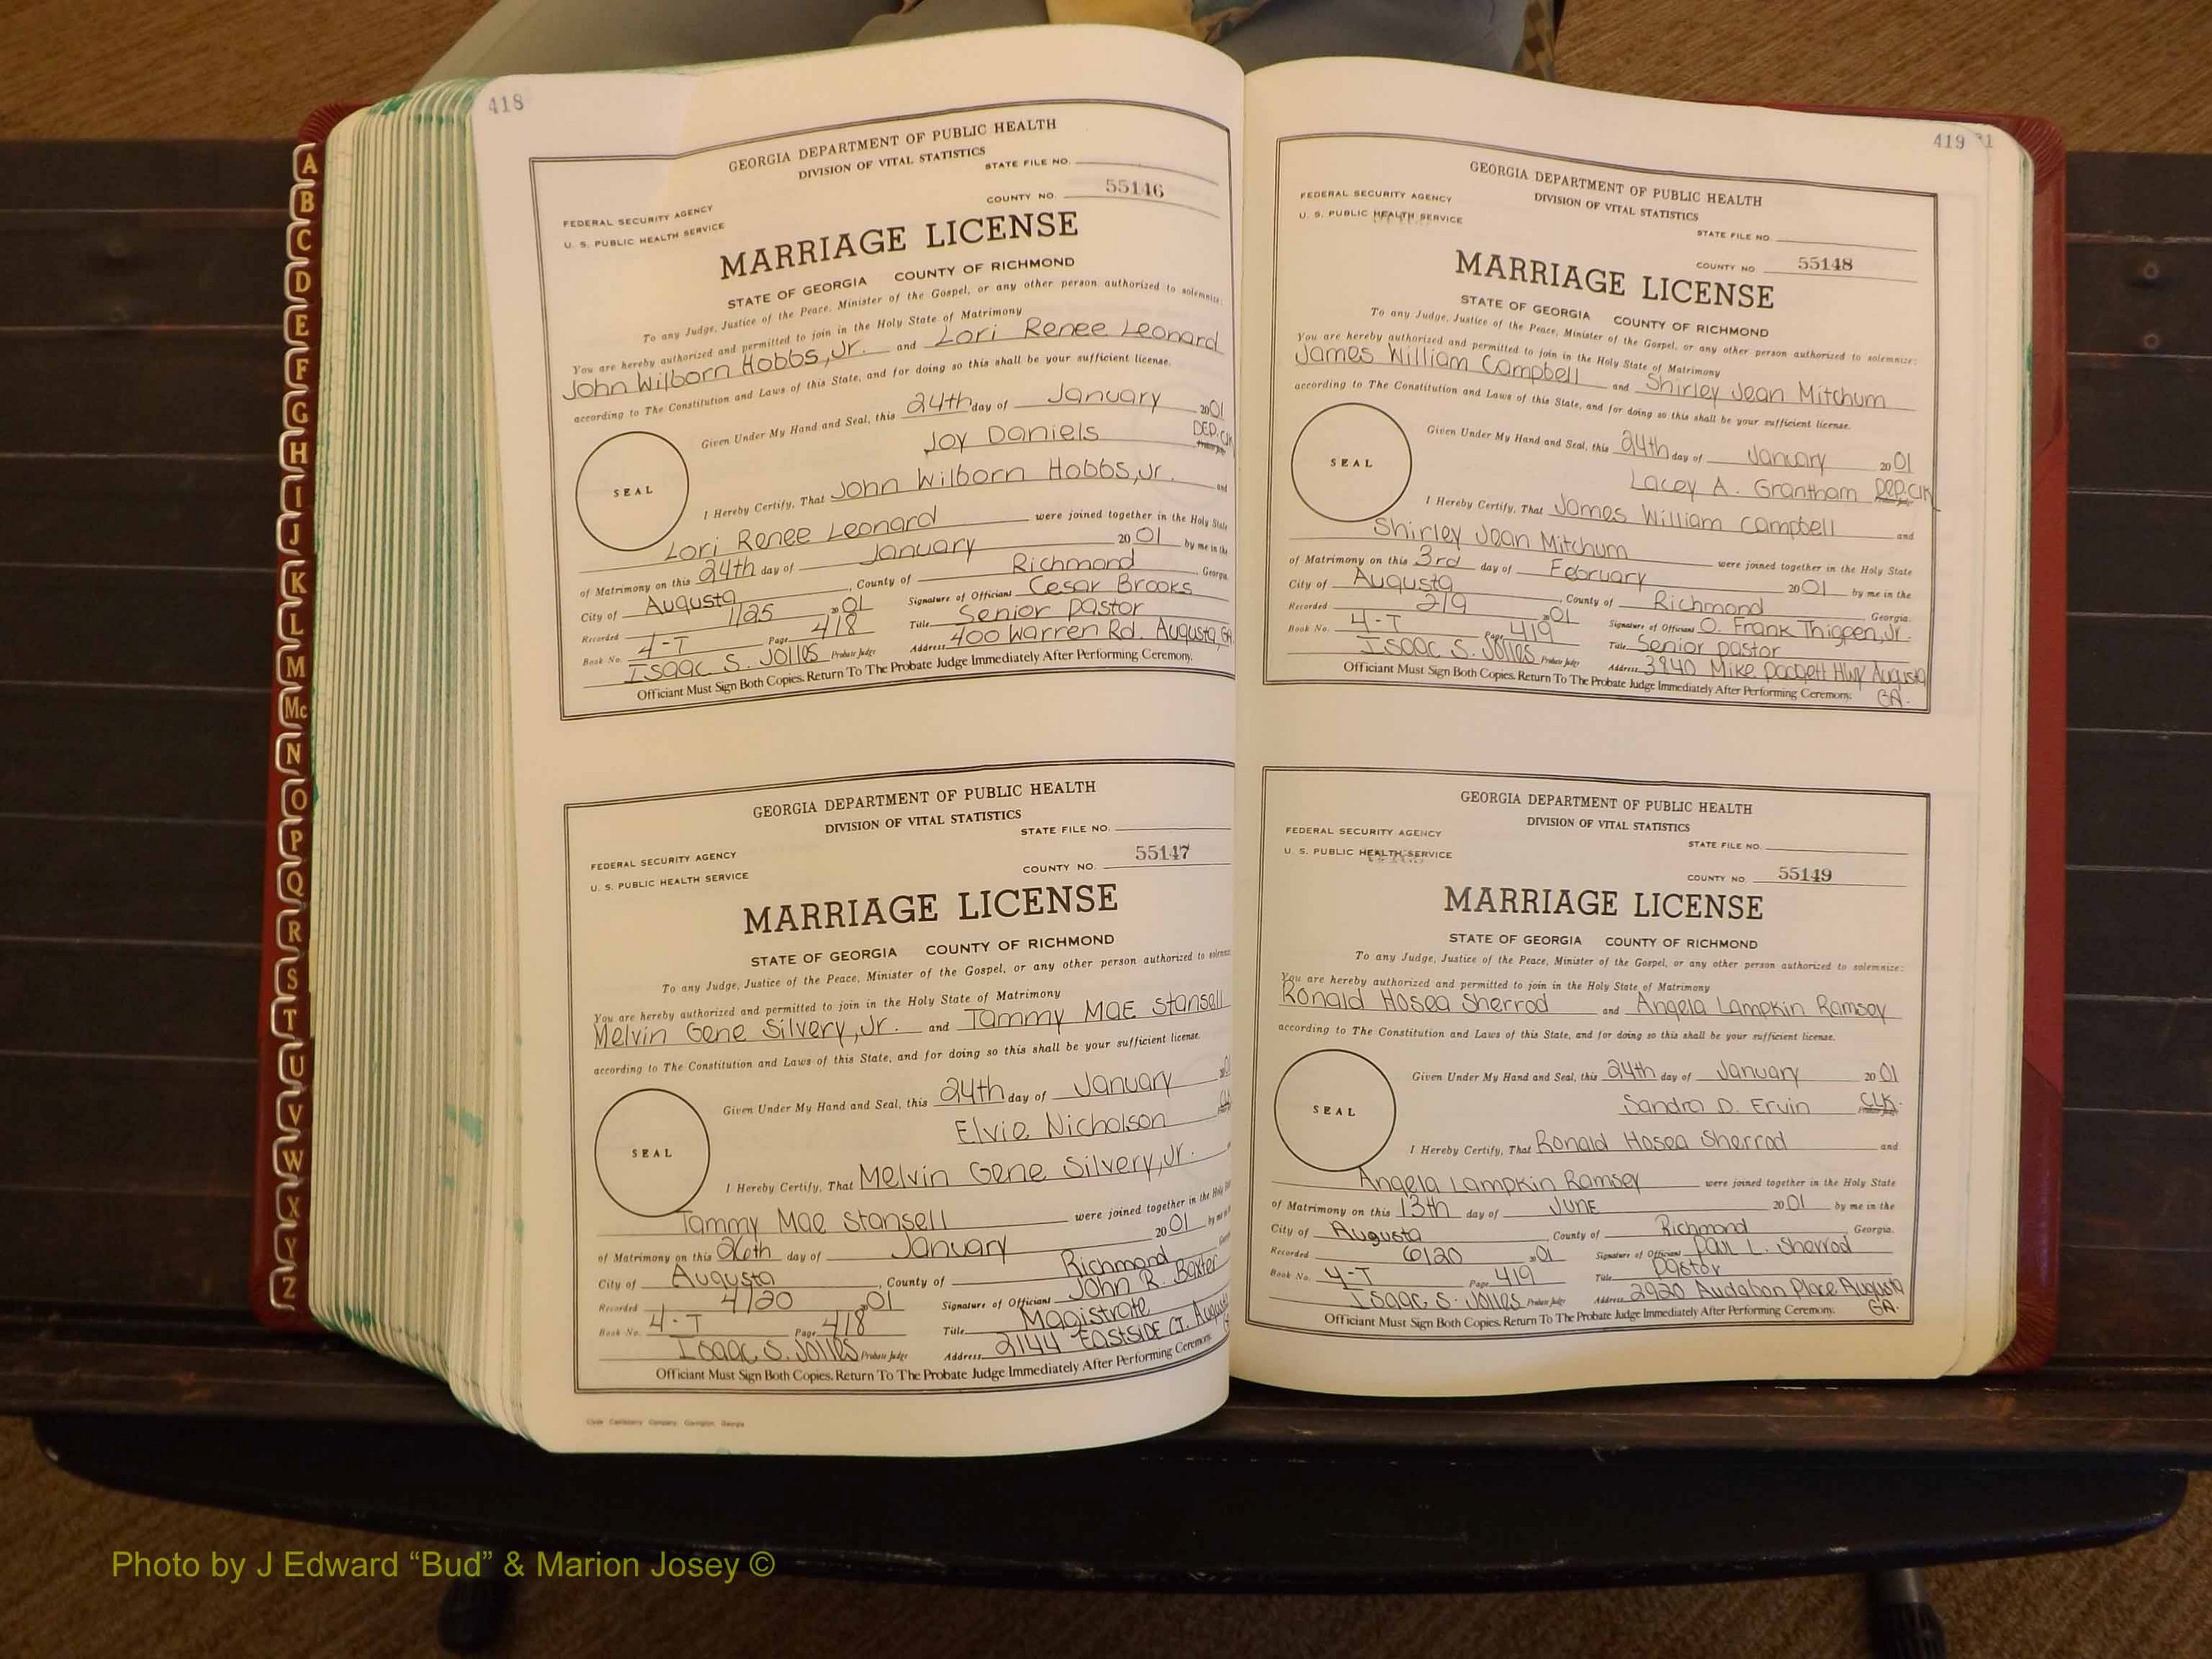 A
B
C
D
E
F
G
H
I
J
K
L
M
Mc
N
O
P
Q
R
S
T
U
V
W
X
Y
Z
418
GEORGIA DEPARTMENT OF PUBLIC HEALTH
DIVISION OF VITAL STATISTICS
STATE FILE NO.
FEDERAL SECURITY AGENCY
U. S. PUBLIC HEALTH SERVICE
COUNTY NO. 55146
MARRIAGE LICENSE
STATE OF GEORGIA COUNTY OF RICHMOND
To any Judge, Justice of the Peace, Minister of the Gospel, or any other person authorized to solemnize:
You are hereby authorized and permitted to join in the Holy State of Matrimony
John Wilborn Hobbs, Jr. and Lori Renee Leonard
according to The Constitution and Laws of this State, and for doing so this shall be your sufficient license.
Given Under My Hand and Seal, this 24th day of January 2001
Joy Daniels DEP. Clk
SEAL
I Hereby Certify, That John Wilborn Hobbs, Jr. and
Lori Renee Leonard were joined together in the Holy State
of Matrimony on this 24th day of January 2001 by me in the
City of Augusta, County of Richmond, Georgia.
Recorded 1/25 2001 Signature of Officiant Cesar Brooks
Book No. 4-T Page 418 Title Senior Pastor
Isaac S. Jolles Probate Judge Address 400 Warren Rd. Augusta, GA
Officiant Must Sign Both Copies. Return To The Probate Judge Immediately After Performing Ceremony.
GEORGIA DEPARTMENT OF PUBLIC HEALTH
DIVISION OF VITAL STATISTICS
STATE FILE NO.
FEDERAL SECURITY AGENCY
U. S. PUBLIC HEALTH SERVICE
COUNTY NO. 55147
MARRIAGE LICENSE
STATE OF GEORGIA COUNTY OF RICHMOND
To any Judge, Justice of the Peace, Minister of the Gospel, or any other person authorized to
You are hereby authorized and permitted to join in the Holy State of Matrimony
Melvin Gene Silvery, Jr. and Tammy MAE Stansell
according to The Constitution and Laws of this State, and for doing so this shall be your sufficient license.
Given Under My Hand and Seal, this 24th day of January
Elvie Nicholson
SEAL
I Hereby Certify, That Melvin Gene Silvery, Jr.
Tammy Mae Stansell were joined together in the Holy
of Matrimony on this 26th day of January 2001 by me in
City of Augusta, County of Richmond
Recorded 4/20 2001 Signature of Officiant John R. Baxter
Book No. 4-T Page 418 Title Magistrate
Isaac S. Jolles Probate Judge Address 2144 EASTSIDE CT. Augusta
Officiant Must Sign Both Copies. Return To The Probate Judge Immediately After Performing Ceremony.
419
GEORGIA DEPARTMENT OF PUBLIC HEALTH
DIVISION OF VITAL STATISTICS
FEDERAL SECURITY AGENCY
U. S. PUBLIC HEALTH SERVICE
STATE FILE NO.
COUNTY NO 55148
MARRIAGE LICENSE
STATE OF GEORGIA COUNTY OF RICHMOND
To any Judge, Justice of the Peace, Minister of the Gospel, or any other person authorized to solemnize:
You are hereby authorized and permitted to join in the Holy State of Matrimony
James William Campbell and Shirley Jean Mitchum
according to The Constitution and Laws of this State, and for doing so this shall be your sufficient license.
Given Under My Hand and Seal, this 24th day of January 2001
Lacey A. Grantham Dep. Clk
SEAL
I Hereby Certify, That James William Campbell and
Shirley Jean Mitchum were joined together in the Holy State
of Matrimony on this 3rd day of February 2001 by me in the
City of Augusta, County of Richmond, Georgia.
Recorded 2/9 2001 Signature of Officiant O. Frank Thigpen, Jr.
Book No. 4-T Page 419 Title Senior Pastor
Isaac S. Jolles Probate Judge Address 3940 Mike Padgett Hwy Augusta
GA.
Officiant Must Sign Both Copies. Return To The Probate Judge Immediately After Performing Ceremony.
GEORGIA DEPARTMENT OF PUBLIC HEALTH
DIVISION OF VITAL STATISTICS
FEDERAL SECURITY AGENCY
U. S. PUBLIC HEALTH SERVICE
STATE FILE NO.
COUNTY NO 55149
MARRIAGE LICENSE
STATE OF GEORGIA COUNTY OF RICHMOND
To any Judge, Justice of the Peace, Minister of the Gospel, or any other person authorized to solemnize:
You are hereby authorized and permitted to join in the Holy State of Matrimony
Ronald Hosea Sherrod and Angela Lampkin Ramsey
according to The Constitution and Laws of this State, and for doing so this shall be your sufficient license.
Given Under My Hand and Seal, this 24th day of January 2001
Sandra D. Ervin CLK.
SEAL
I Hereby Certify, That Ronald Hosea Sherrod and
Angela Lampkin Ramsey were joined together in the Holy State
of Matrimony on this 13th day of JUNE 2001 by me in the
City of Augusta, County of Richmond, Georgia.
Recorded 6/20 2001 Signature of Officiant Paul L. Sherrod
Book No. 4-T Page 419 Title Pastor
Isaac S. Jolles Probate Judge Address 2920 Audabon Place Augusta
GA.
Officiant Must Sign Both Copies. Return To The Probate Judge Immediately After Performing Ceremony.
Photo by J Edward “Bud” & Marion Josey ©